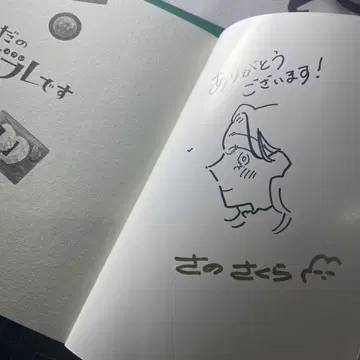 だの
プレです
ありがとう
ございます!
さの さくら